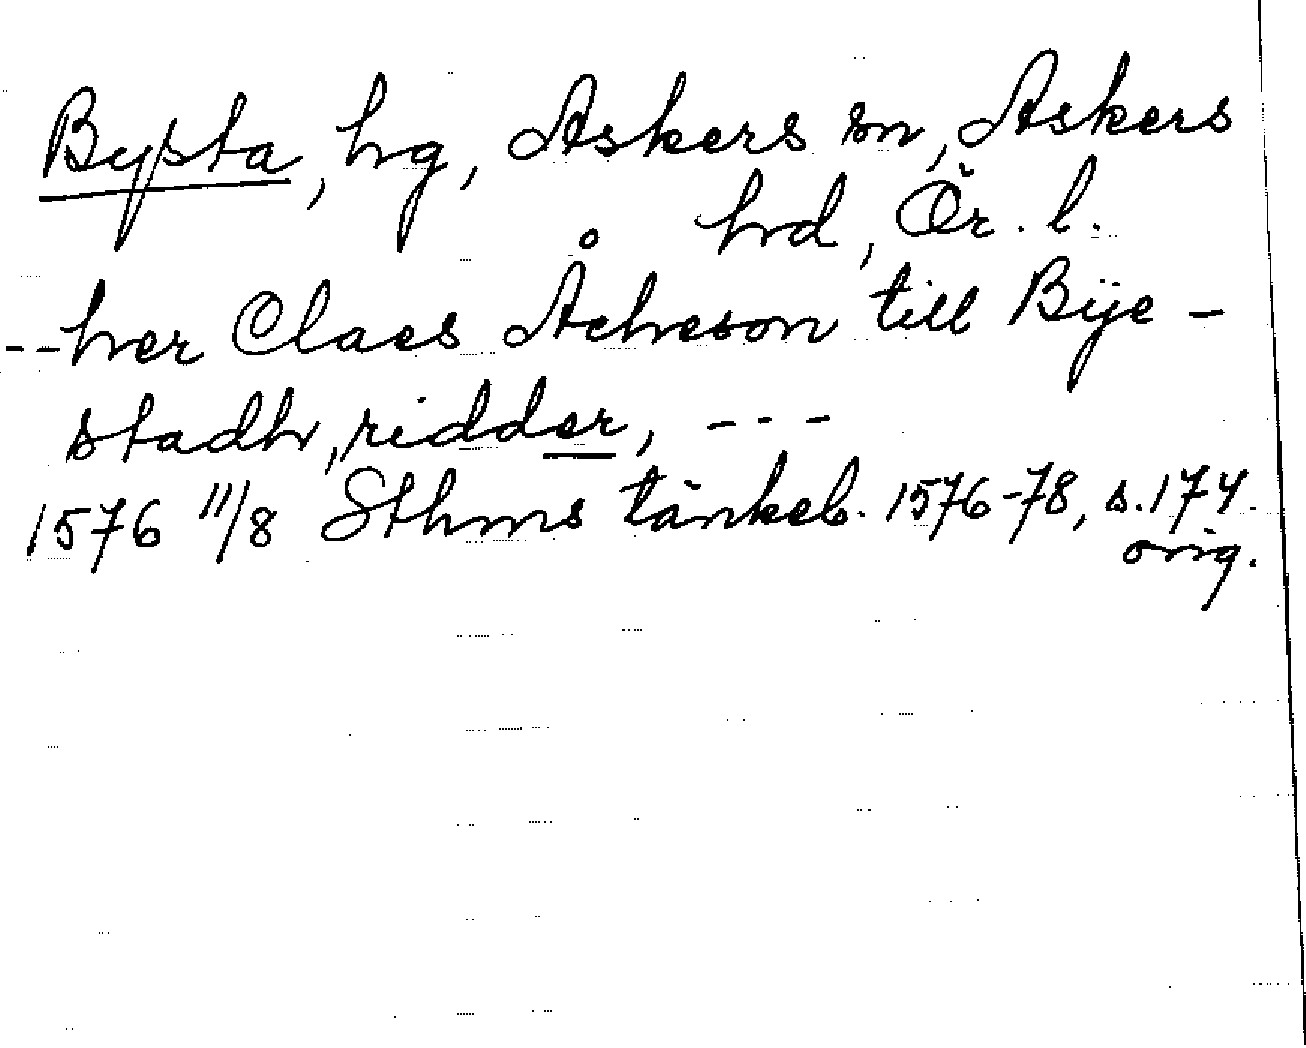 Bysta, hg, Askers sn, Askers
hrd, Ör. l.
--her Claes Åcheson till Bÿe-
stadh, ridder, ---
1576 11/8 Sthms tänkeb. 1576-78, s. 174.
orig.